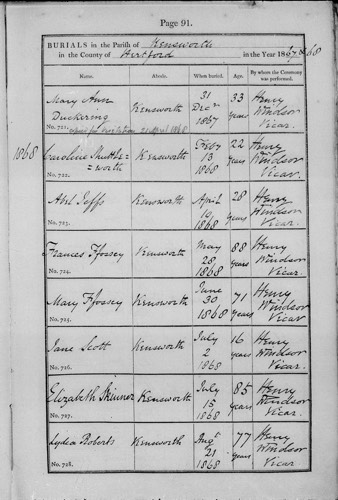 Page 91.
BURIALS in the Parish of Kensworth
in the County of Hertford in the Year 1867 & 68
Name. Abode. When buried. Age. By whom the Ceremony was performed.
Mary Ann Duckering Kensworth 31 Decr 1867 33 years Henry Windsor Vicar.
No. 721. April 1868
1868
Caroline Shuttleworth Kensworth Feby 13 1868 22 years Henry Windsor Vicar.
No. 722.
Abel Jeffs Kensworth April 10 1868 28 years Henry Windsor Vicar.
No. 723.
Frances Fossey Kensworth May 28 1868 88 years Henry Windsor Vicar.
No. 724.
Mary Fossey Kensworth June 30 1868 71 years Henry Windsor Vicar.
No. 725.
Jane Scott Kensworth July 2 1868 16 years Henry Windsor Vicar.
No. 726.
Elizabeth Skinner Kensworth July 15 1868 85 years Henry Windsor Vicar.
No. 727.
Lydia Roberts Kensworth Augt 21 1868 77 years Henry Windsor Vicar
No. 728.